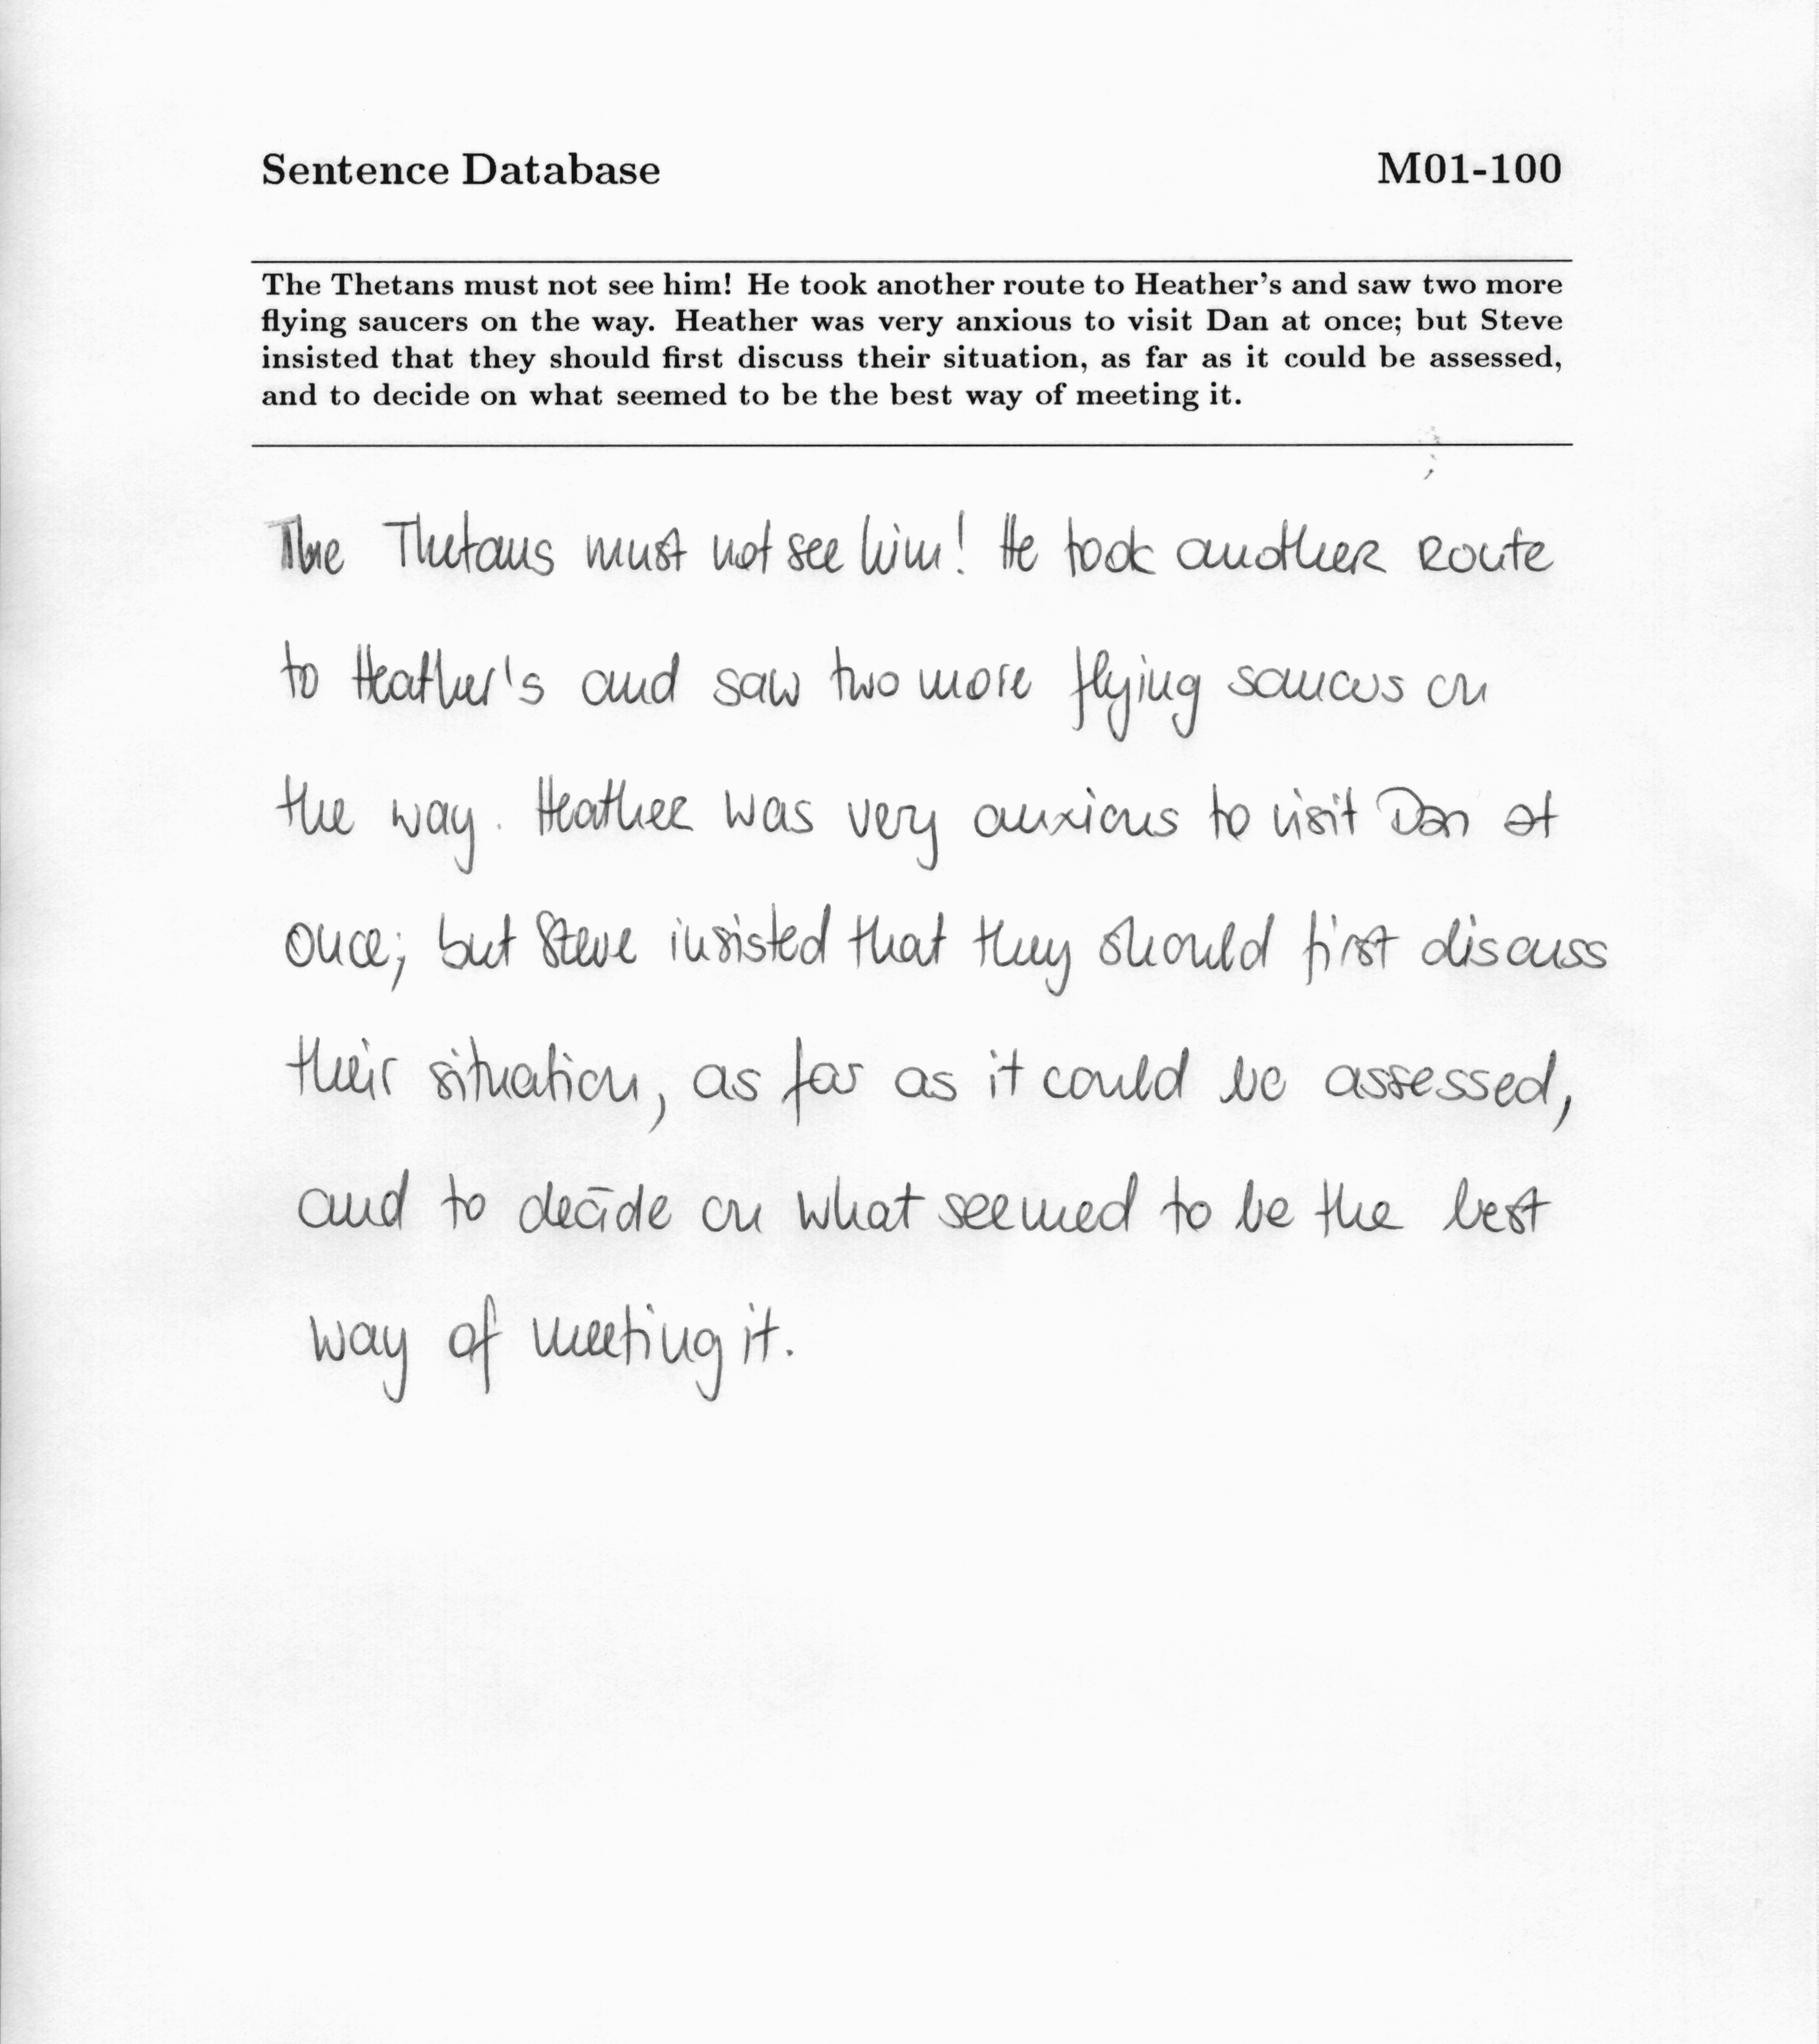 Sentence Database M01-100
The Thetans must not see him! He took another route to Heather's and saw two more
flying saucers on the way. Heather was very anxious to visit Dan at once; but Steve
insisted that they should first discuss their situation, as far as it could be assessed,
and to decide on what seemed to be the best way of meeting it.
The Thetans must not see him! He took another route
to Heather's and saw two more flying saucers on
the way. Heather was very anxious to visit Dan at
once; but Steve insisted that they should first discuss
their situation, as far as it could be assessed,
and to decide on what seemed to be the best
way of meeting it.